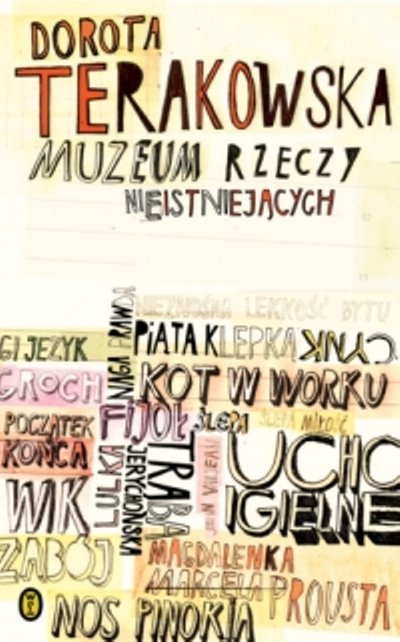 DOROTA
TERAKOWSKA
MUZEUM RZECZY
NIEISTNIEJĄCYCH
NIEZNOŚNA LEKKOŚĆ BYTU
NAGA PRAWDA
PIĄTA KLEPKA
CYNIK
GI JĘZYK
GROCH
KOT W WORKU
POCZĄTEK
KOŃCA
FIJOŁ
ŚLEPA
ŚLEPA MIŁOŚĆ
LULKA
TRĄBA
JERYCHOŃSKA
UCHO
IGIELNE
WK
ZABÓJ
MAGDALENKA
MARCELA PROUSTA
NOS PINOKIA